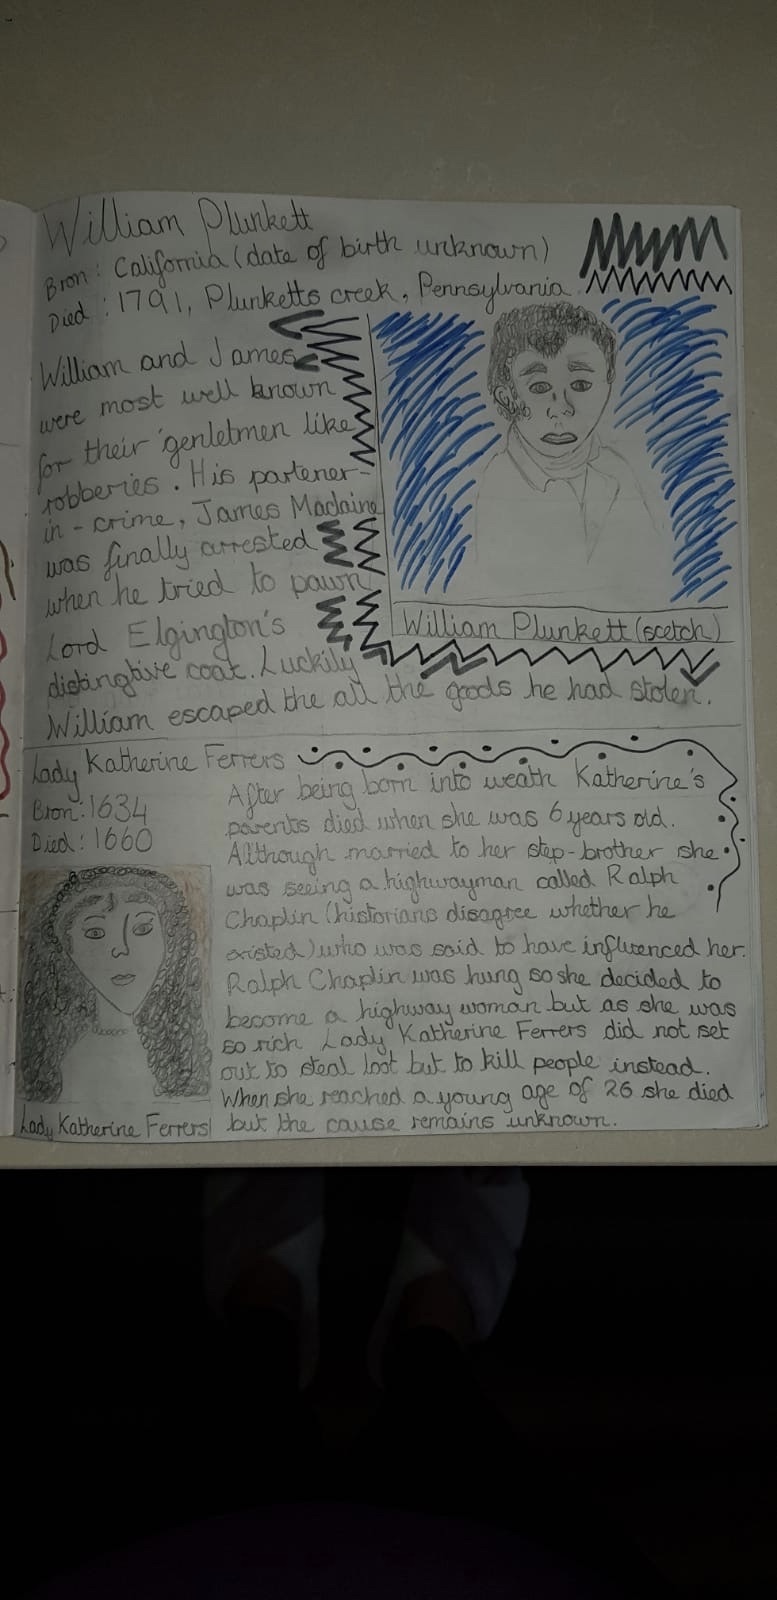 William Plunkett
Bron: California (date of birth unknown)
Died: 1791, Plunketts creek, Pennsylvania
William and James
were most well known
for their 'genletmen like
robberies. His partener-
in-crime, James Maclaine
was finally arrested
when he tried to pawn
Lord Elgington's
distingtive coat. Luckily
William escaped the all the goods he had stolen.
William Plunkett (scetch)
Lady Katherine Ferrers
Bron: 1634
Died: 1660
After being born into weath Katherine's
parents died when she was 6 years old.
Although married to her step-brother she
was seeing a highwayman called Ralph
Chaplin (historians disagree whether he
existed) who was said to have influenced her.
Ralph Chaplin was hung so she decided to
become a highway woman but as she was
so rich Lady Katherine Ferrers did not set
out to steal loot but to kill people instead.
When she reached a young age of 26 she died
but the cause remains unknown.
Lady Katherine Ferrers